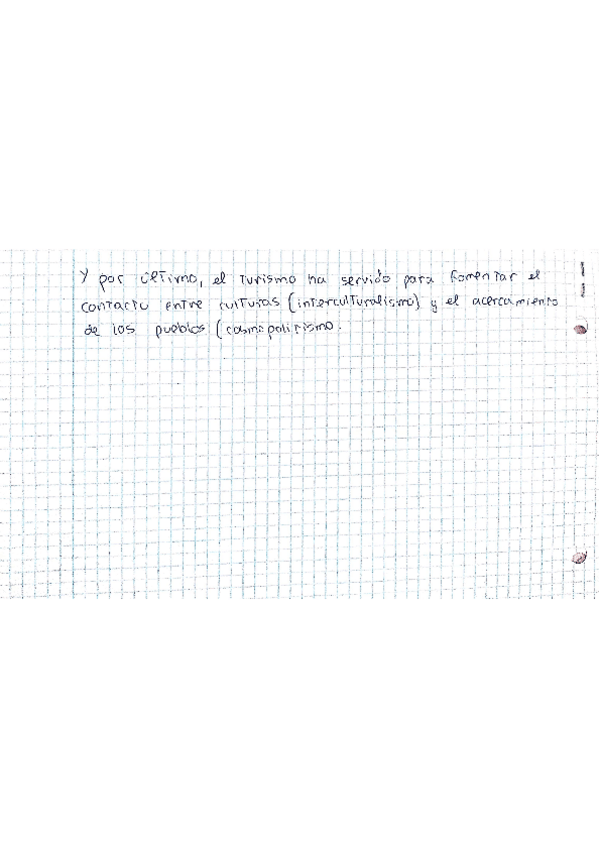 Y por último, el turismo ha servido para fomentar el
contacto entre culturas (interculturalismo) y el acercamiento
de los pueblos (cosmopolitismo.